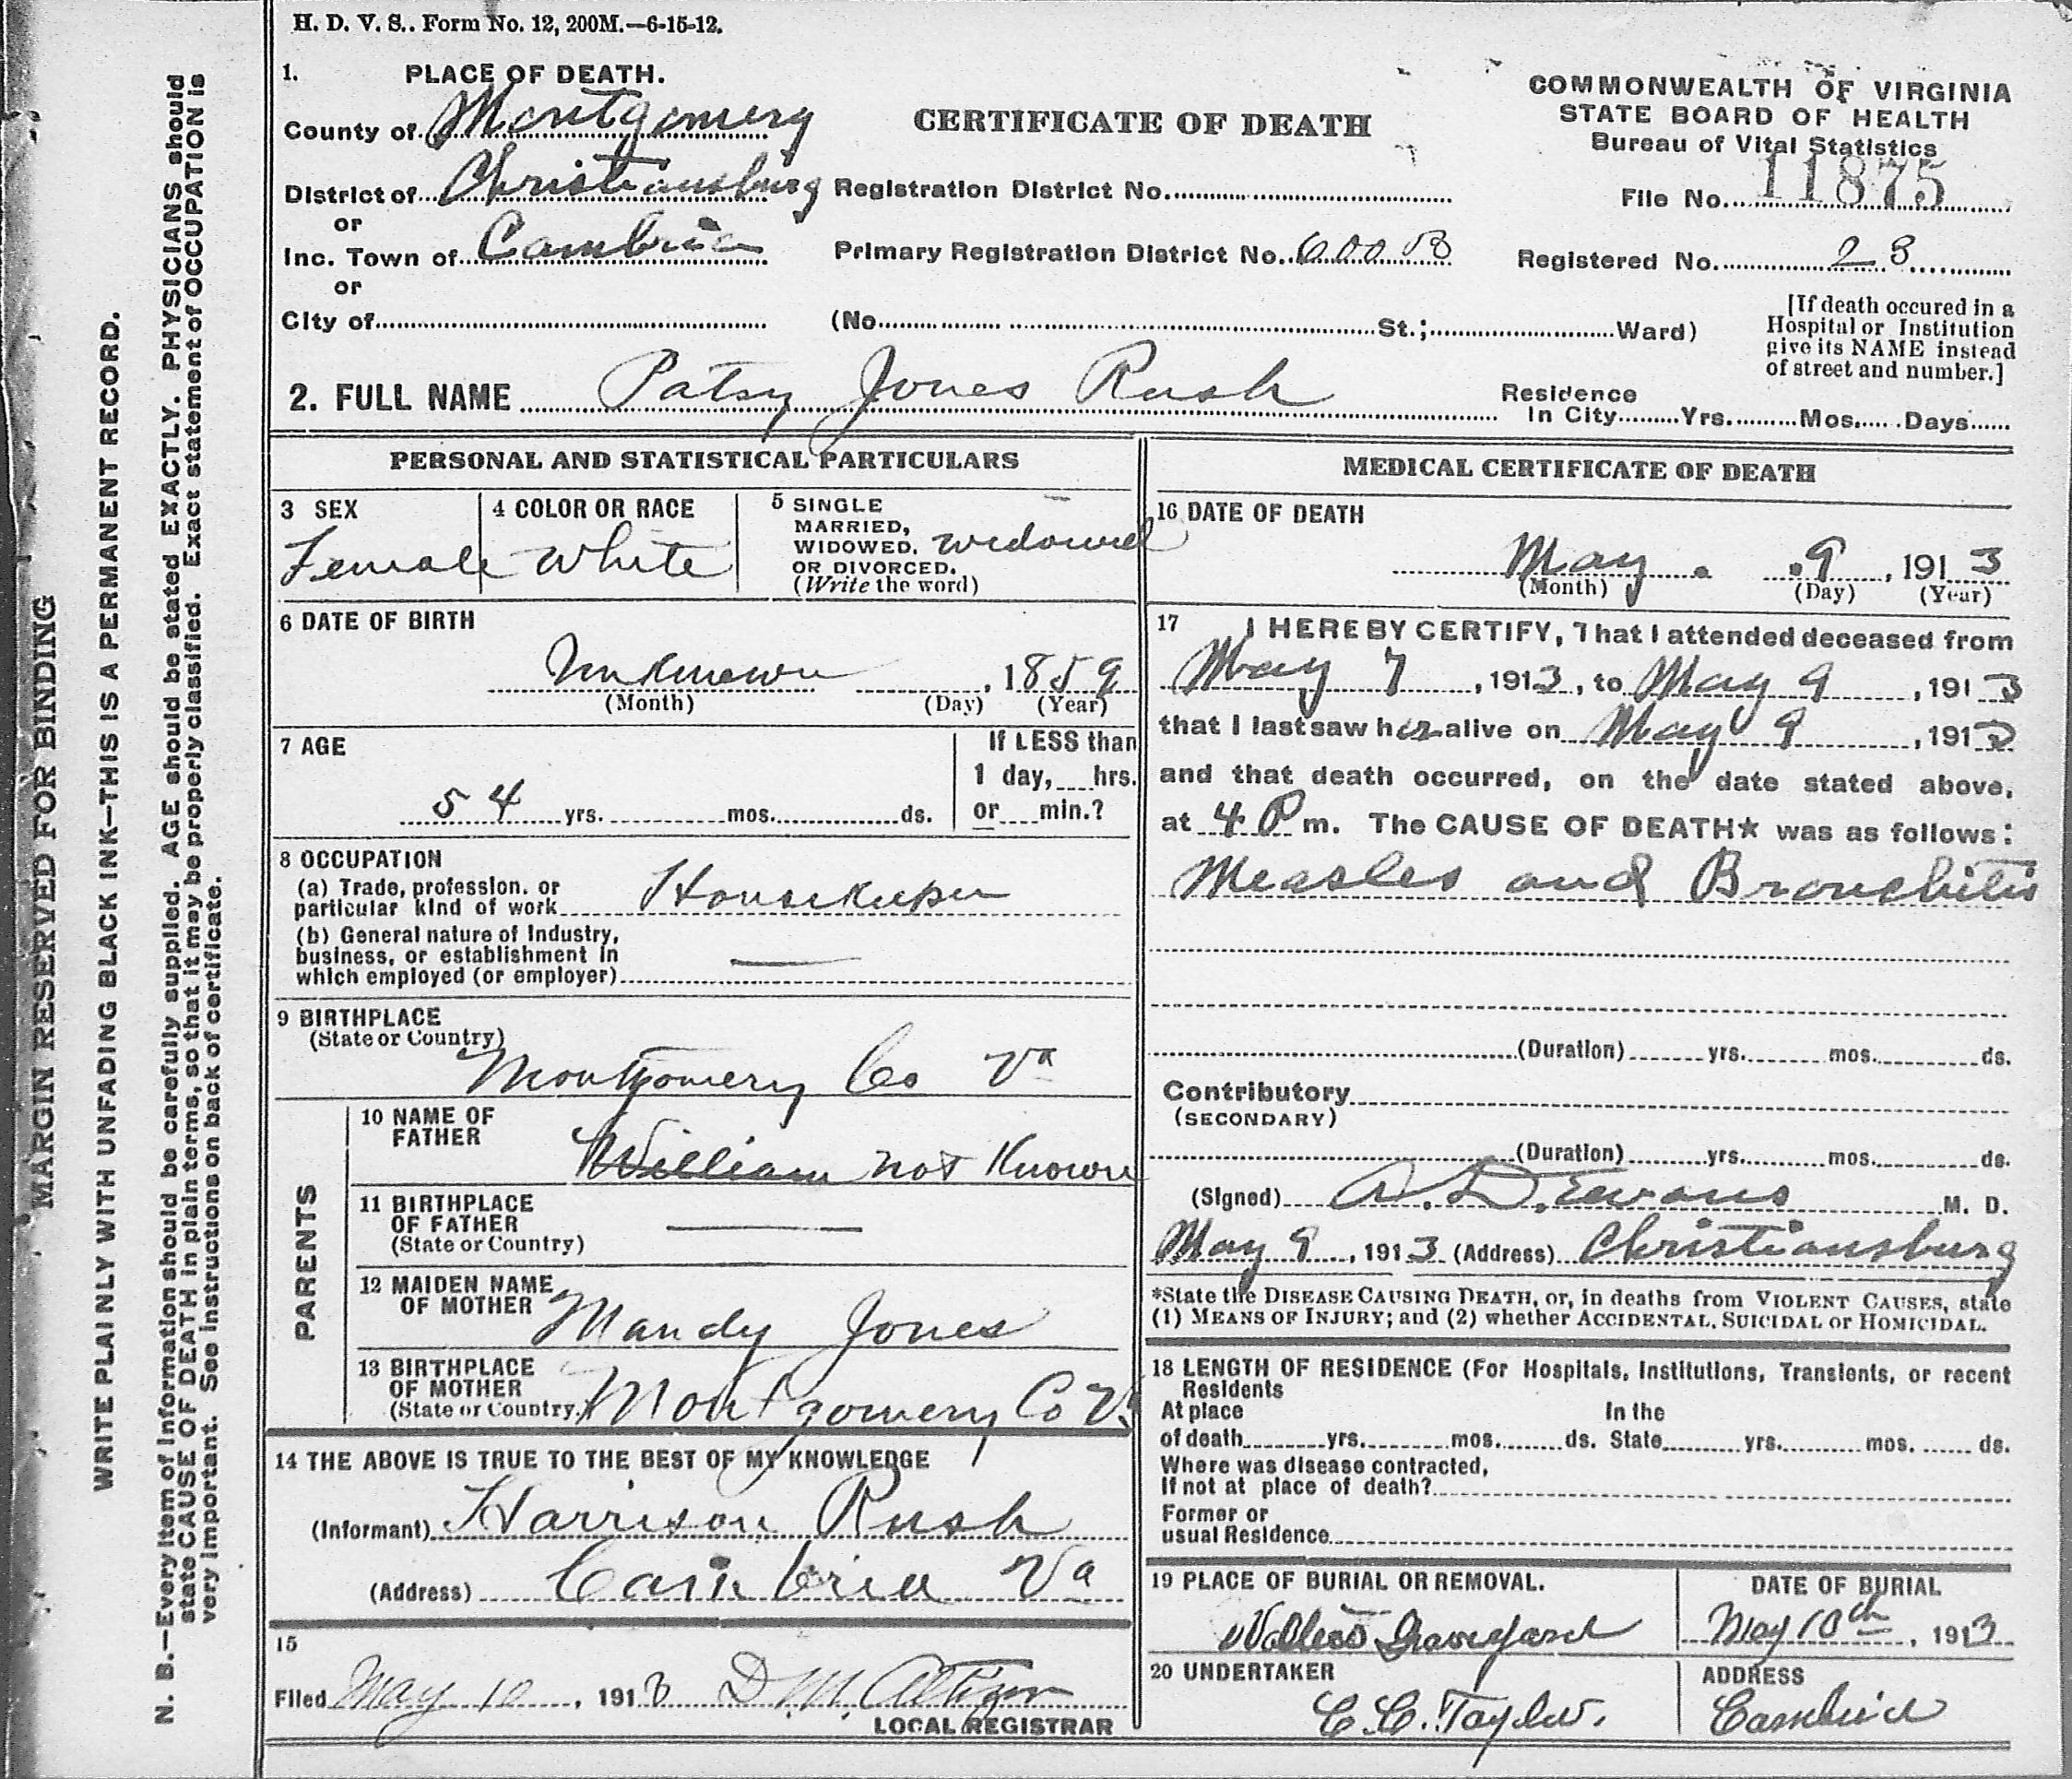 H. D. V. S.. Form No. 12, 200M.—6-15-12.
1. PLACE OF DEATH.
County of Montgomery
District of Christiansburg
or
Inc. Town of Cambria
or
City of
CERTIFICATE OF DEATH
Registration District No.
Primary Registration District No. 600 B
(No. St.; Ward)
COMMONWEALTH OF VIRGINIA
STATE BOARD OF HEALTH
Bureau of Vital Statistics
File No. 11875
Registered No. 28
[If death occured in a
Hospital or Institution
give its NAME instead
of street and number.]
2. FULL NAME Patsy Jones Rush
Residence
In City Yrs. Mos. Days
PERSONAL AND STATISTICAL PARTICULARS
3 SEX
Female
4 COLOR OR RACE
White
5 SINGLE
MARRIED,
WIDOWED, widowed
OR DIVORCED.
(Write the word)
6 DATE OF BIRTH
Unknown , 1859
(Month) (Day) (Year)
7 AGE
54 yrs. mos. ds.
If LESS than
1 day, hrs.
or min.?
8 OCCUPATION
(a) Trade, profession, or
particular kind of work Housekeeper
(b) General nature of Industry,
business, or establishment in
which employed (or employer) —
9 BIRTHPLACE
(State or Country)
Montgomery Co Va
PARENTS
10 NAME OF
FATHER
William not Known
11 BIRTHPLACE
OF FATHER
(State or Country) —
12 MAIDEN NAME
OF MOTHER Mandy Jones
13 BIRTHPLACE
OF MOTHER
(State or Country) Montgomery Co Va
14 THE ABOVE IS TRUE TO THE BEST OF MY KNOWLEDGE
(Informant) Harrison Rush
(Address) Cambria Va
15
Filed May 10, 1913 D. M.
LOCAL REGISTRAR
MEDICAL CERTIFICATE OF DEATH
16 DATE OF DEATH
May 9, 1913
(Month) (Day) (Year)
17 I HEREBY CERTIFY, That I attended deceased from
May 7, 1913, to May 9, 1913
that I last saw her alive on May 9, 1913
and that death occurred, on the date stated above,
at 4 P m. The CAUSE OF DEATH* was as follows:
Measles and Bronchitis
(Duration) yrs. mos. ds.
Contributory
(SECONDARY)
(Duration) yrs. mos. ds.
(Signed) A. D. Ewans M. D.
May 9, 1913 (Address) Christiansburg
*State the DISEASE CAUSING DEATH, or, in deaths from VIOLENT CAUSES, state
(1) MEANS OF INJURY; and (2) whether ACCIDENTAL, SUICIDAL or HOMICIDAL.
18 LENGTH OF RESIDENCE (For Hospitals, Institutions, Transients, or recent
Residents
At place In the
of death yrs. mos. ds. State yrs. mos. ds.
Where was disease contracted,
If not at place of death?
Former or
usual Residence
19 PLACE OF BURIAL OR REMOVAL.
Graveyard
DATE OF BURIAL
May 10th, 1913
20 UNDERTAKER
C. C. Taylor.
ADDRESS
Cambria
MARGIN RESERVED FOR BINDING
WRITE PLAINLY WITH UNFADING BLACK INK—THIS IS A PERMANENT RECORD.
N. B.—Every item of information should be carefully supplied. AGE should be stated EXACTLY. PHYSICIANS should
state CAUSE OF DEATH in plain terms, so that it may be properly classified. Exact statement of OCCUPATION is
very important. See instructions on back of certificate.